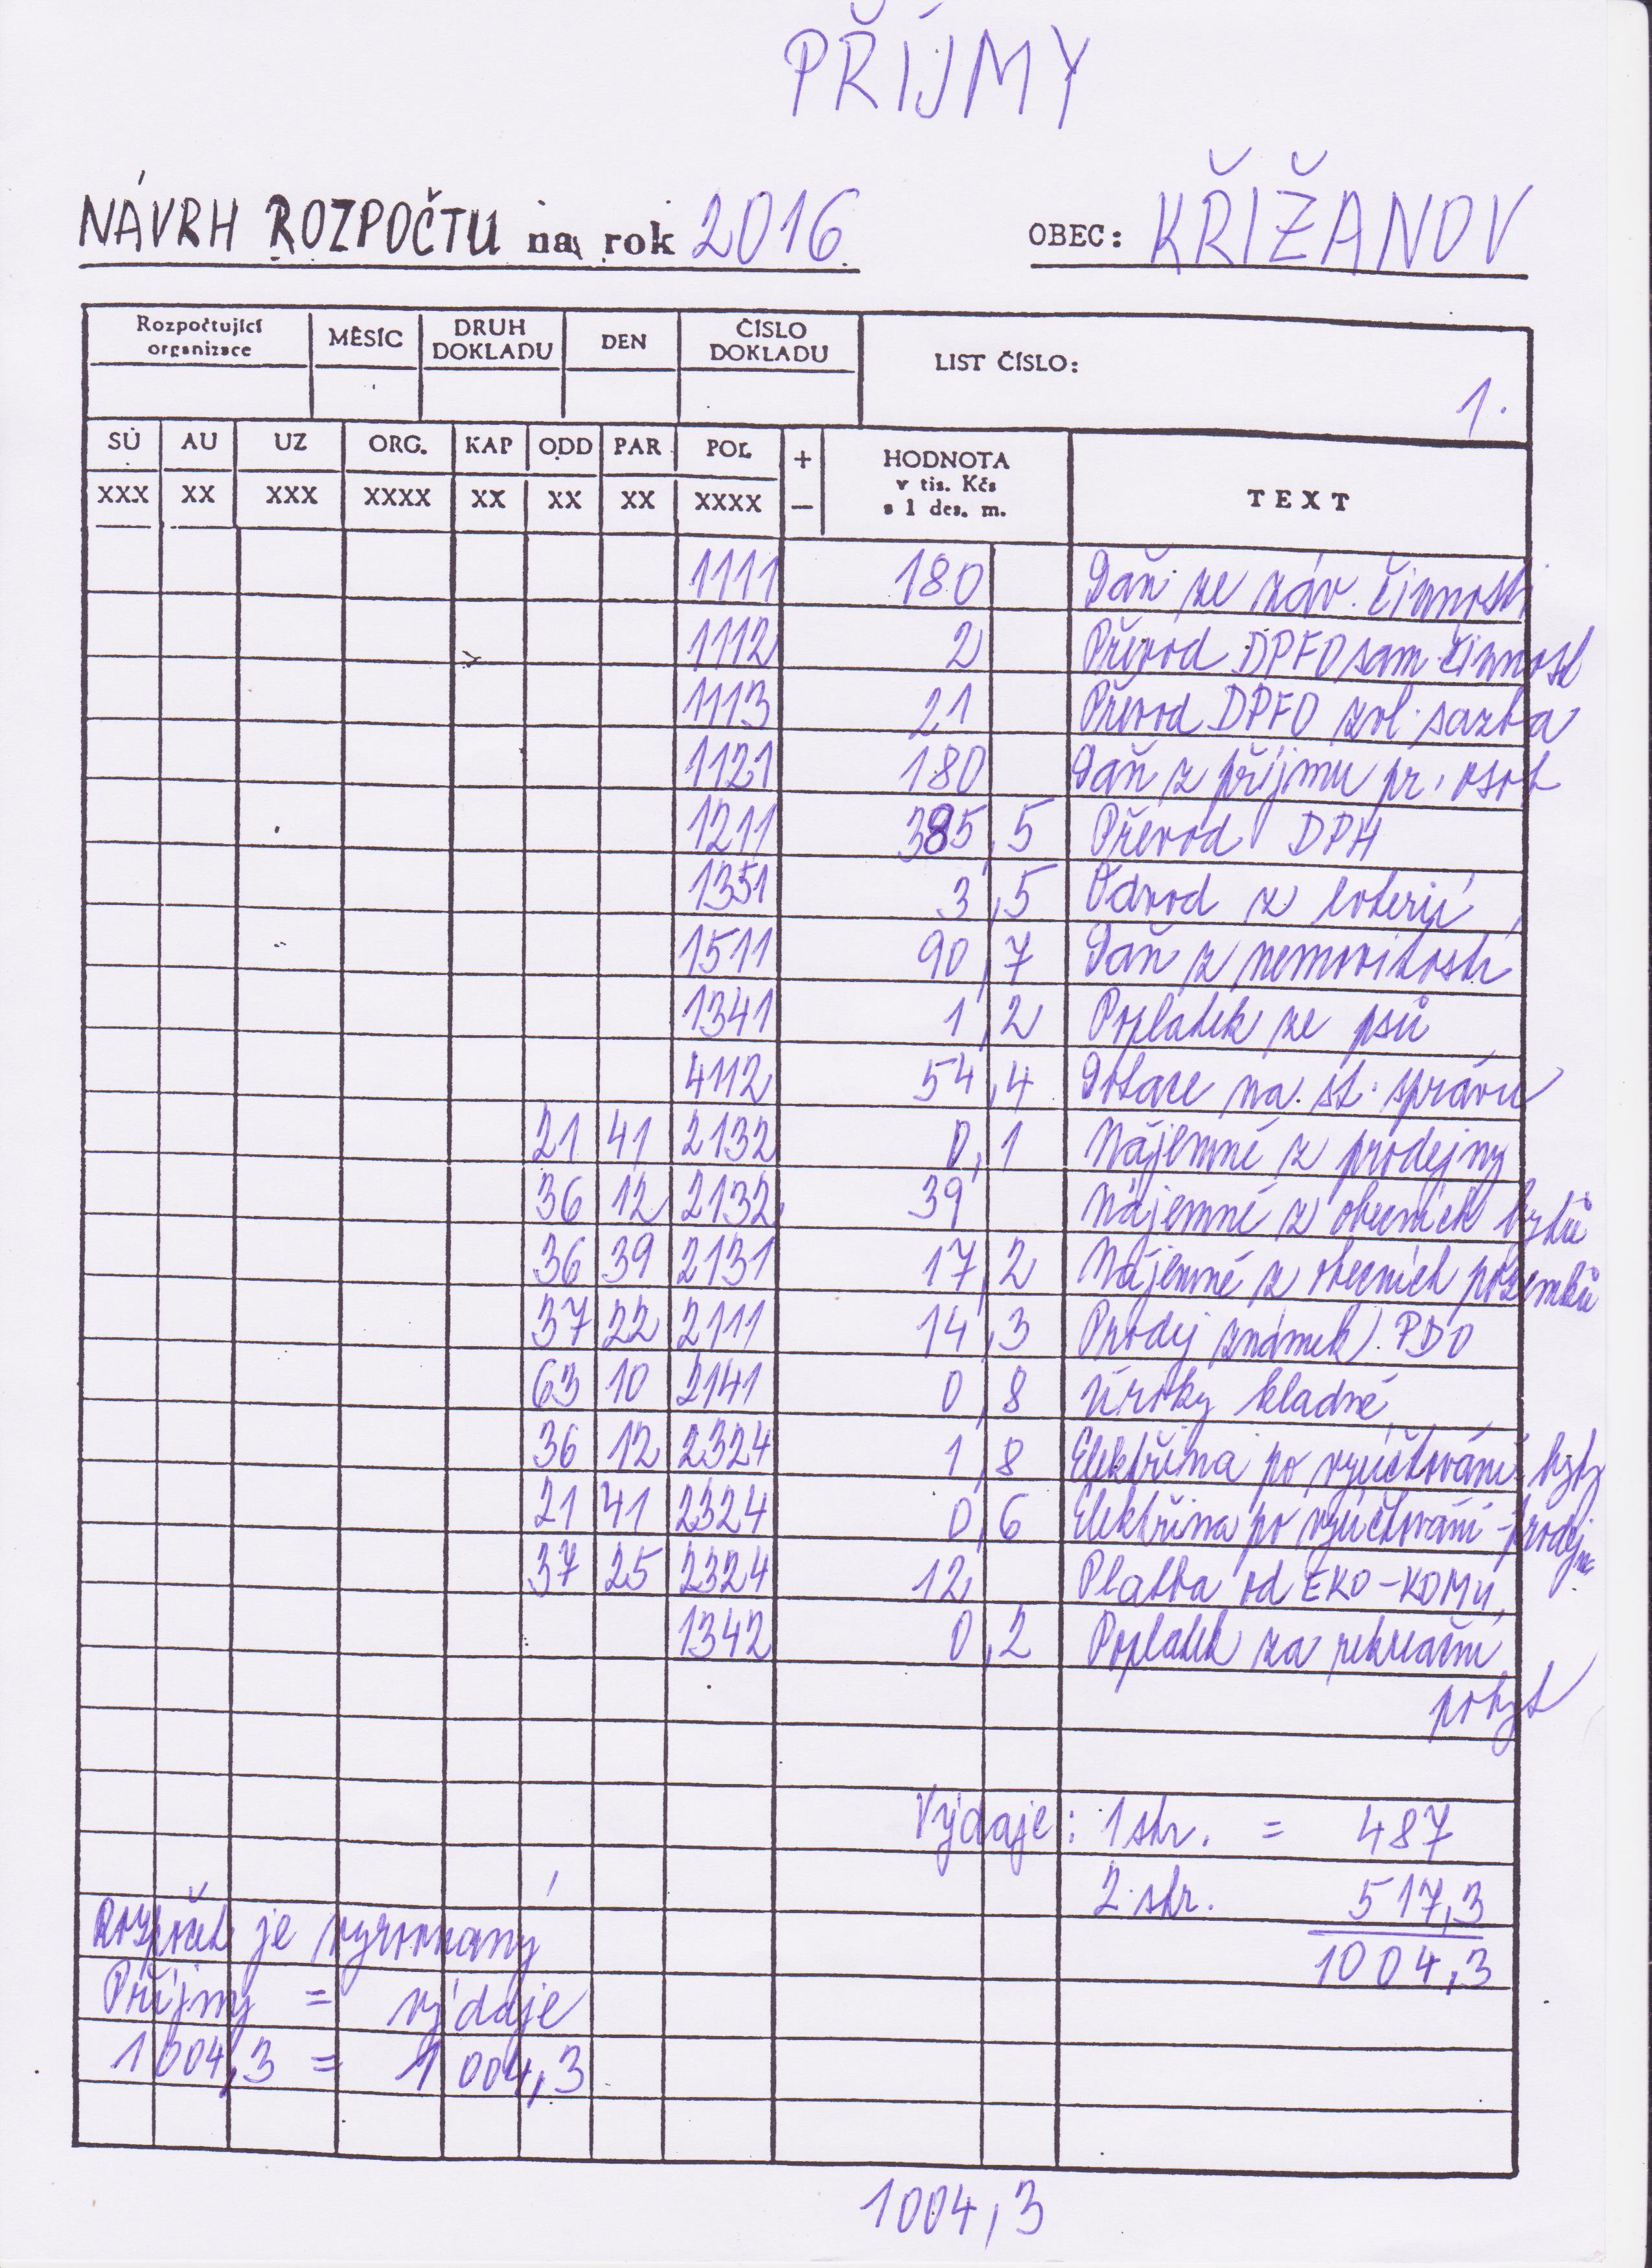 PŘÍJMY
NÁVRH ROZPOČTU na rok 2016 OBEC: KŘIŽANOV
Rozpočtující organizace MĚSÍC DRUH DOKLADU DEN ČÍSLO DOKLADU LIST ČÍSLO: 1.
SÚ AU UZ ORG. KAP ODD PAR POL + HODNOTA v tis. Kčs TEXT
XXX XX XXX XXXX XX XX XX XXXX — s 1 des. m.
1111 180 Daň ze záv. činnosti
1112 2 Převod DPFO sam činnost
1113 21 Převod DPFO zvl. sazba
1121 180 Daň z příjmu pr. osob
1211 385,5 Převod DPH
1351 3,5 Odvod z loterií
1511 90,7 Daň z nemovitostí
1341 1,2 Poplatek ze psů
4112 54,4 Dotace na st. správu
21 41 2132 0,1 Nájemné z prodejny
36 12 2132 39 Nájemné z obecních bytů
36 39 2131 17,2 Nájemné z obecních pozemků
37 22 2111 14,3 Prodej známek PDO
63 10 2141 0,8 Úroky kladné
36 12 2324 1,8 Elektřina po vyúčtování byty
21 41 2324 0,6 Elektřina po vyúčtování - prodejna
37 25 2324 12 Platba od EKO-KOMU
1342 0,2 Poplatek za rekreační
pobyt
Výdaje: 1 str. = 487
2 str. 517,3
Rozpočet je vyrovnaný
1004,3
Příjmy = výdaje
1004,3 = 1004,3
1004,3